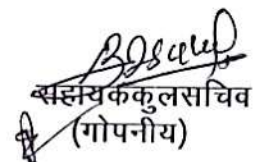 सहायककुलसचिव
(गोपनीय)